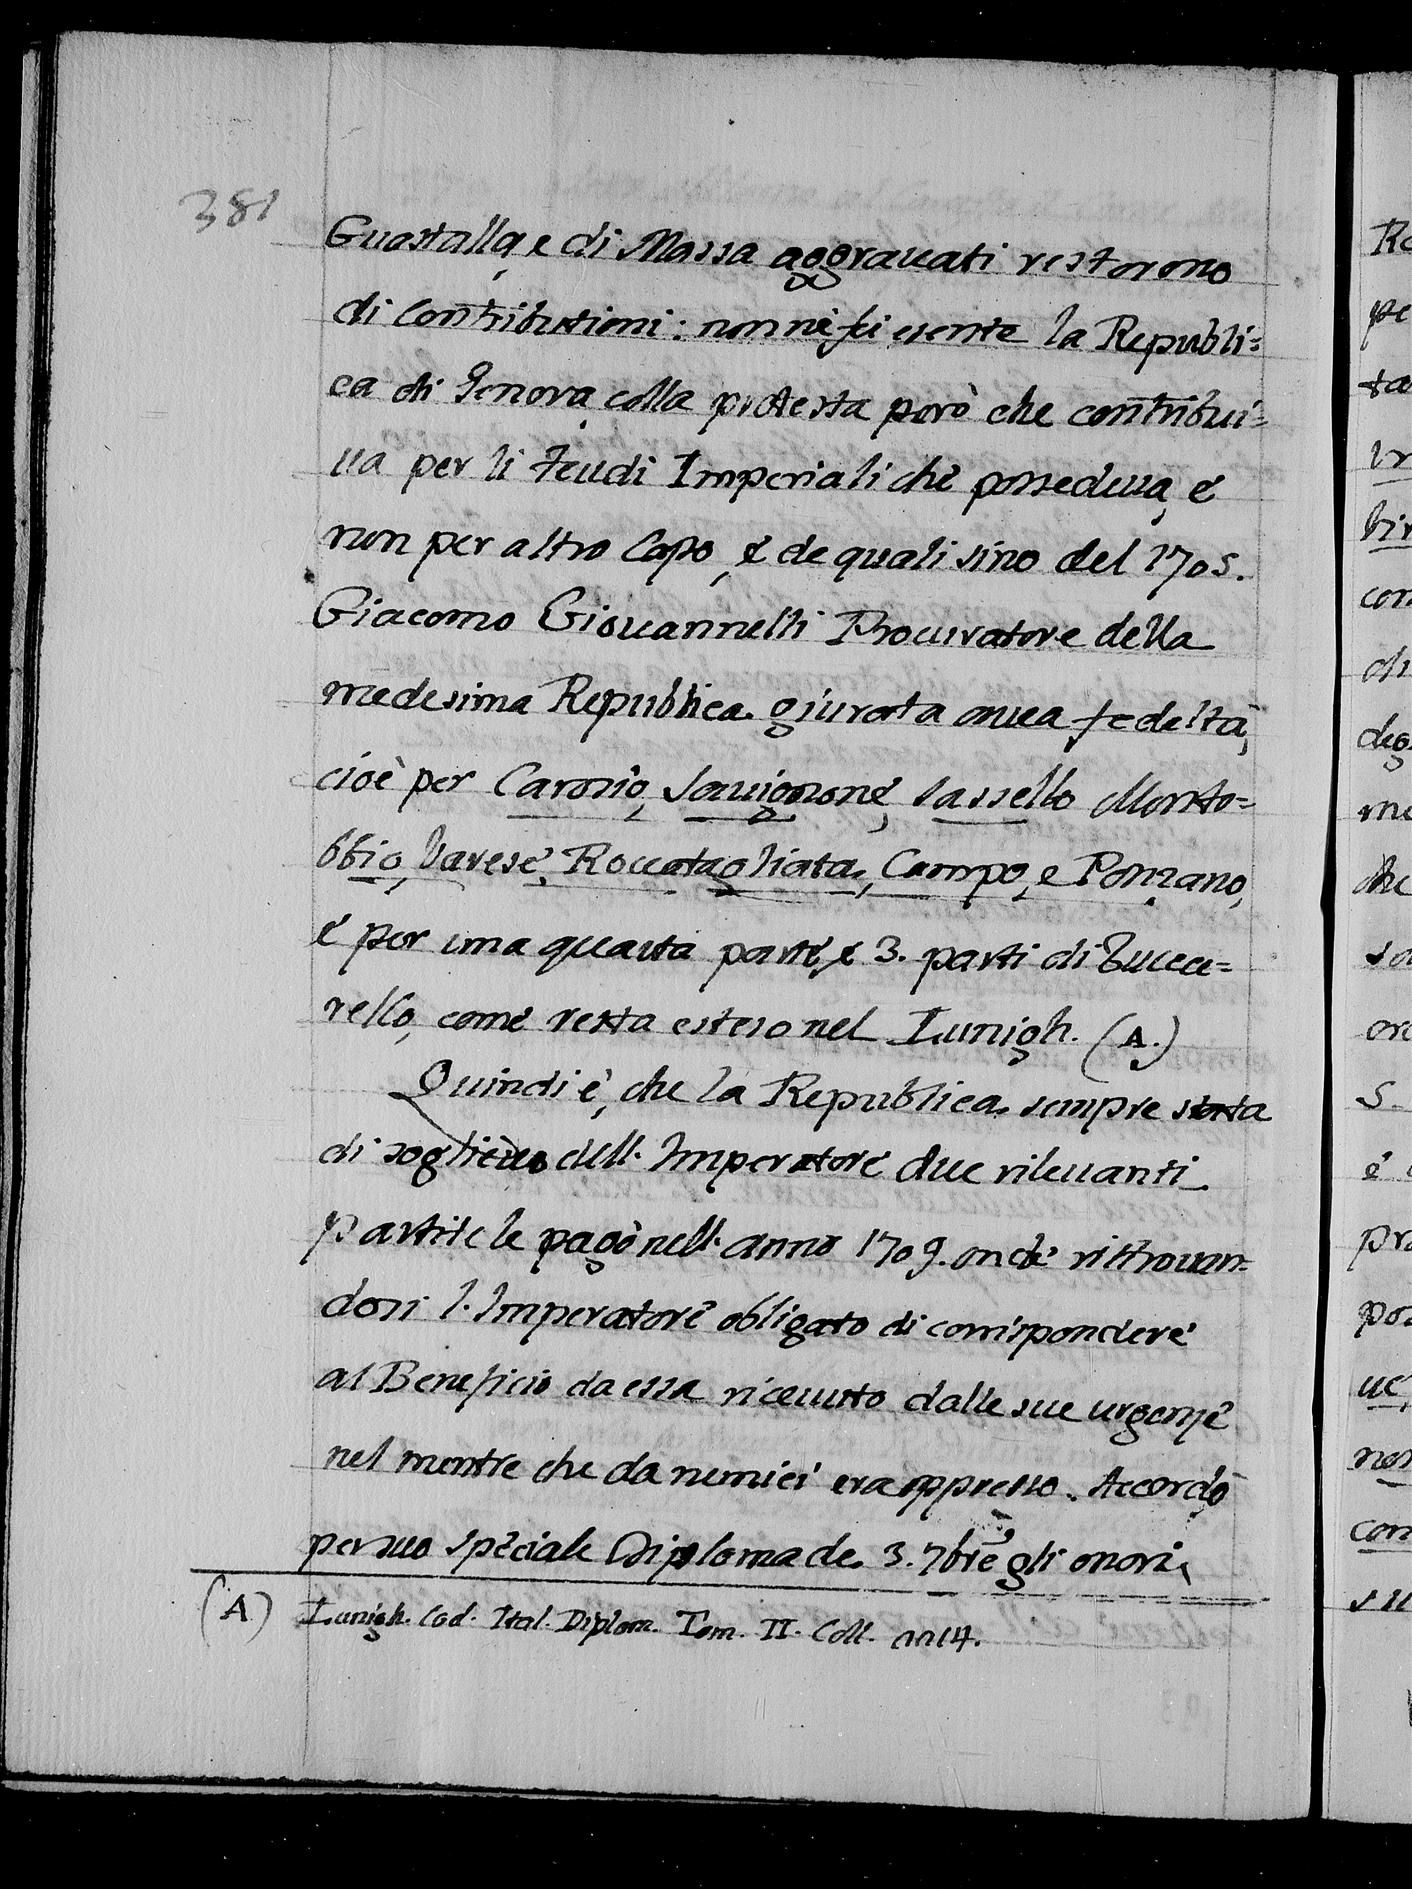 381
Guastalla, e di Massa aggrauati restorono
di Contributioni: non nè fù esente la Republi=
ca di Genova, colla protesta però che contribui=
ua per li Feudi Imperiali chè possedeua, è
non per altro Capo, è de quali sino del 1705.
Giacomo Giouannelli Procuratore della
medesima Republica giurata auea fedeltà,
cioè per Carosio, Sauignone, Sassello Monto=
bbio, Varesè, Roccatagliata, Campo, e Ponzano,
è per una quarta partè, è 3. parti di Bucca=
rello, comè resta esteso nel Lunigh. (A.)
Quindi è, che la Republica sempre
di sogliè dell. Imperatorè due rileuanti
partite le pagò nell. anno 1709. ondè rittrouan=
dosi l. Imperatorè obligato di corrisponderè
al Beneficio da essa riceuuto dalle sue urgenzè
nel mentre che da nemici era oppresso. Accordò
per suo spèciale Diploma de 3. 7brè gli onori
(A) Lunigh. Cod. Ital. Diplom. Tom. II. Coll. 2214.
Re
pe
ta
con
di
deg
me
che
so
S.
è
pro
pos
ue,
non
con
su